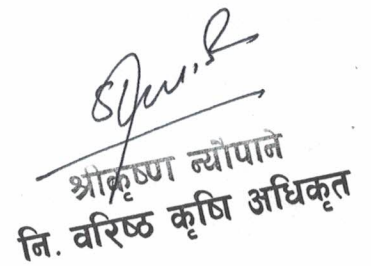 श्रीकृष्ण न्यौपाने
नि. वरिष्ठ कृषि अधिकृत